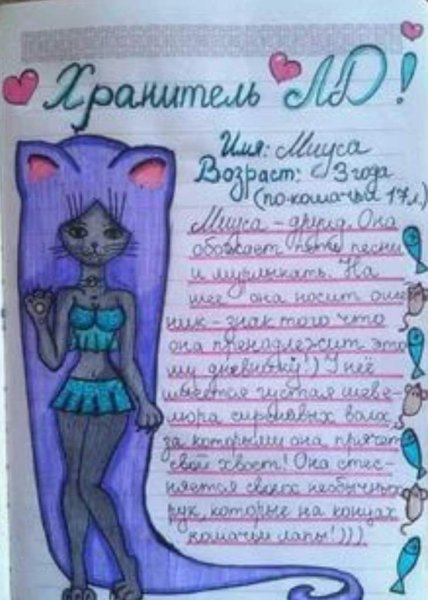 Хранитель ЛД!
Имя: Миуса
Возраст: 3 года
(по-кошачьи 17 л.)
Миуса - друид. Она
обожает петь песни
и мурлыкать. На
шее она носит ошей
ник - знак того что
она пренадлежит это
му дневнику!) У неё
имеется густая шеве-
люра сиреневых волос,
за которыми она прячет
свой хвост! Она стес-
няется своих необычных
рук, которые на концах
кошачьи лапы!)))